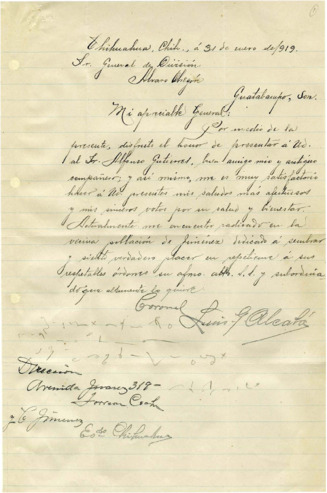 6
Chihuahua, Chih., á 31 de enero de 1919.
Sr. General de División
Alvaro Obregón
Guatabampo, Son.
Mi apreciable General:
Por medio de la
presente, disfruto el honor de presentar á Ud.
al Sr. Alfonso Gutierrez, buen amigo mío y antiguo
compañero; y así mismo, me es muy satisfactorio
hacer á Ud presentes mis saludos más afectuosos
y mis sinceros votos por su salud y bienestar.
Actualmente me encuentro radicado en la
vecina población de Jiménez dedicado á sembrar
y siento verdadero placer en repetirme á sus
respetables órdenes su afmo. atto. S.S. y subordina
do que altamente lo quiere
Coronel
Luis G Alcalá
Dirección
Avenida Juarez 318-
Torreon Coah
y C Jimenez
Edo Chihuahua